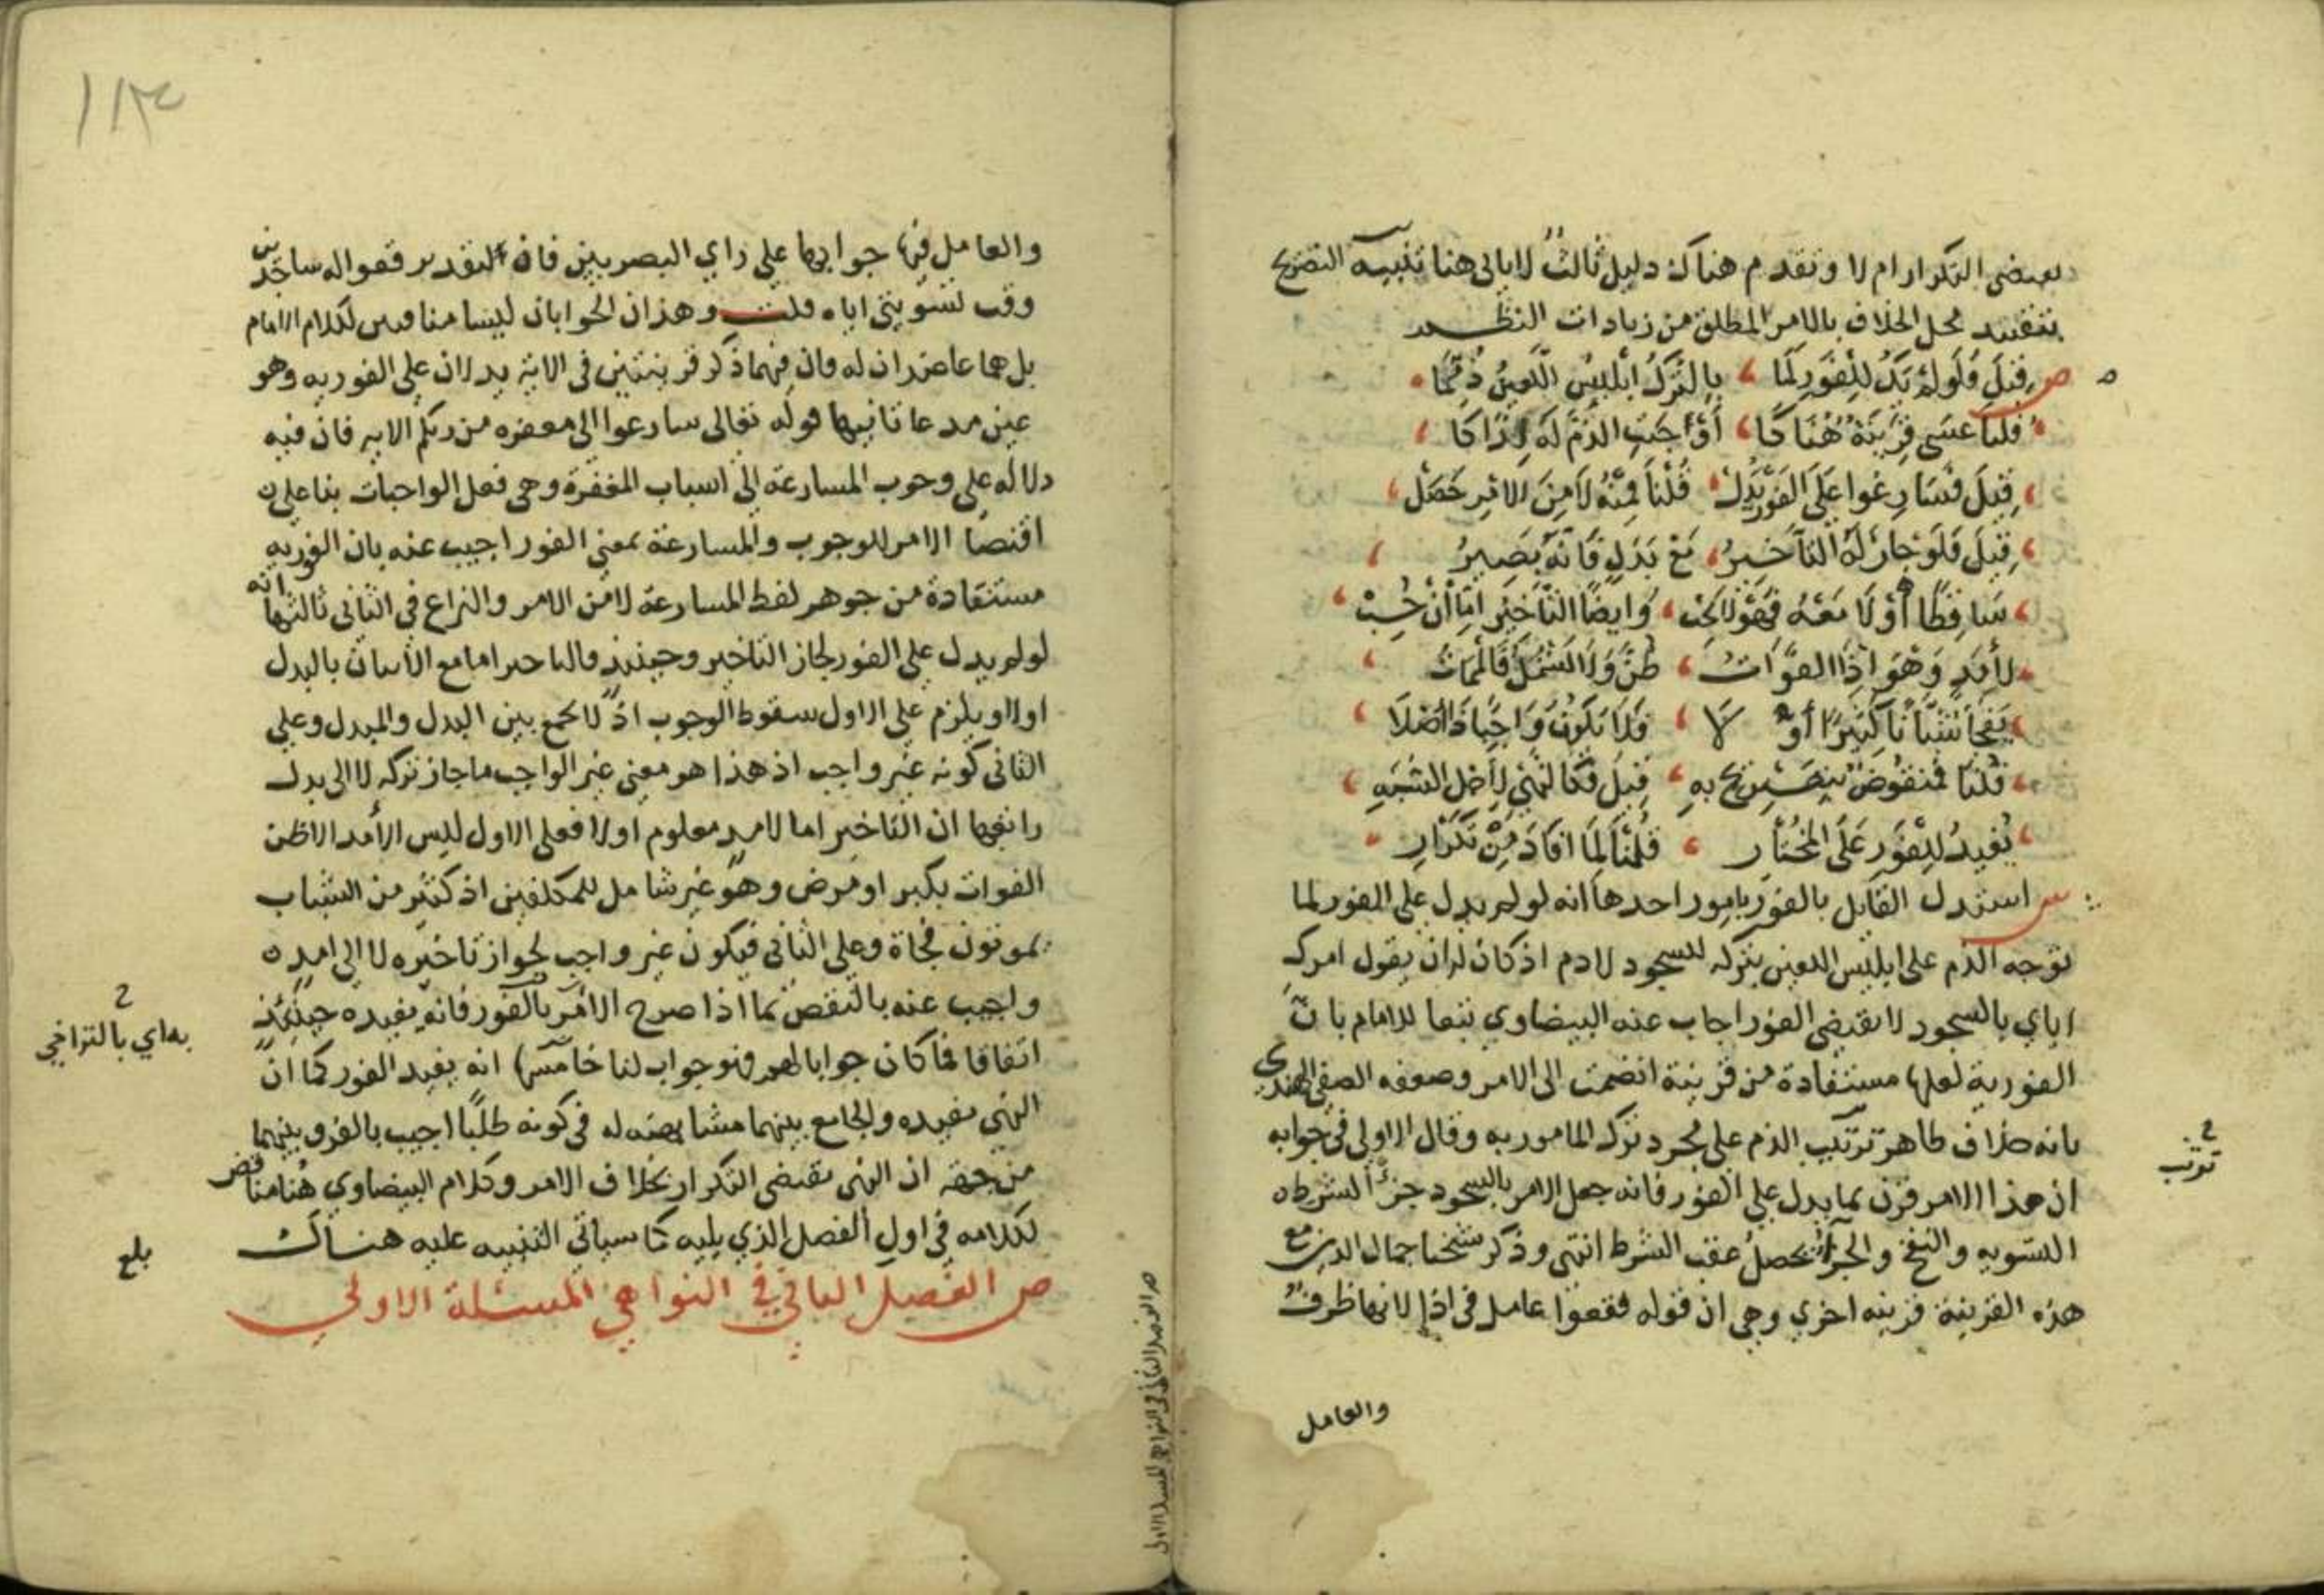 يقتضي التكرار ام لا وتقدم هناك دليل ثالث لا ياتي هنا تنبيه التصريح
بتقييد محل الخلاف بالامر المطلق من زيادات النظم
ص قِيلَ فَلَو لَمْ يَكُ لِلْفَوْرِ لَمَا بِالتَّرْكِ ابْلِيسُ اللَّعِينُ ذُمِّمَا
قُلنا عَسَى قَرِينَةٌ هُنَاكَا أَوْجَبَتِ الذَّمَّ لَهُ لِذَاكَا
قِيلَ فسَارِعُوا عَلَى الفَوْرِ يَدُلْ قُلْنَا فَمِنْهُ لَا مِنَ الامْرِ حَصَلْ
قِيلَ فَلَوْ جَازَ لَهُ التَّأخِيرُ مَعْ بَدَلٍ فَانَّهُ يَصِيرُ
سَاقِطًا أَوْ لَا مَعَهُ فَهْوَ لا يَجِبْ وَايضًا التَّاخِيْر امَّا أنْ
لأمَدٍ وَهْوَ اذَا الفَوَاتُ ظُنَّ وَلَا يَشْمُلُ
يَفْجَا شَبَابًا كَثِيرًا أَوْ لَا فَلَا يَكُونُ وَاجِبًا ذَا اصْلَا
قُلْنَا فَمَنْقُوضٌ بِتَصْرِيحٍ بِهِ قِيلَ فَكَالنَّهْيِ لأجْلِ الشَّبَهِ
يُفِيدُ لِلْفَوْرِ عَلَى المُخْتَارِ قُلْنَا لِمَا افَادَ مِنْ تَكْرَارِ
ش استدل القايل بالفور بامور احدها انه لو لم يدل على الفور لما
توجه الذم على ابليس اللعين بتركه للسجود لادم اذ كان له ان يقول امرك
اياي بالسجود لا يقتضي الفور اجاب عنه البيضاوي تبعا للامام بان
الفورية لعلها مستفادة من قرينة انضمت الى الامر وضعفه الصفي الهندي
بانه خلاف ظاهر ترتيب الذم على مجرد ترك المامور به وقال الاولى في جوابه
ان هذا الامر قرن بما يدل على الفور فانه جعل الامر بالسجود جزاء لشرط
التسوية والنفخ والجزاء يحصل عقب الشرط انتهى وذكر شيخنا جمال الدين مع
هذه القرينة قرينه اخرى وهي ان قوله فقعوا عامل في اذا لانها ظرف
والعامل
ترتب
والعامل فيها جوابها على راي البصريين فان التقدير فقعوا له ساجدين
وقت تسويتي اياه قلت وهذان الجوابان ليسا منافيين لكلام الامام
بل هما عاضدان له فان فيهما ذكر قرينتين في الاية يدلان على الفورية وهو
عين مدعانا ثانيها قوله تعالى سارعوا الى مغفرة من ربكم الاية فان فيه
دلالة على وجوب المسارعة الى اسباب المغفرة وهي فعل الواجبات بناء على
اقتضا الامر للوجوب والمسارعة بمعنى الفور اجيب عنه بان الفورية
مستفادة من جوهر لفظ المسارعة لا من الامر والنزاع في الثاني ثالثها انه
لو لم يدل على الفور لجاز التاخير وحينئذ فالتاخير اما مع الاتيان بالبدل
اولا ويلزم على الاول سقوط الوجوب اذ لا يجمع بين البدل والمبدل وعلى
الثاني كونه غير واجب اذ هذا هو معنى غير الواجب ما جاز تركه لا الى بدل
رابعها ان التاخير اما لامد معلوم اولا فعلى الاول ليس الأمد الا ظن
الفوات بكبر او مرض وهو غير شامل للمكلفين اذ كثير من الشباب
يموتون فجاة وعلى الثاني فيكون غير واجب لجواز تاخيره لا الى امد
واجيب عنه بالنقض بما اذا صرح الامر بالفور فانه يفيده حينئذ
اتفاقا فما كان جوابا لهم فهو جواب لنا خامسها انه يفيد الفور كما ان
النهي يفيده والجامع بينهما مشابهته له في كونه طلبًا اجيب بالفرق بينهما
من جهة ان النهي يقتضي التكرار بخلاف الامر وكلام البيضاوي هنا مناقض
لكلامه في اول الفصل الذي يليه كما سياتي التنبيه عليه هناك
ص الفصل الثاني في النواهي المسئلة الاولى
به اي بالتراخي
بلغ
ص الفصل الثاني في النواهي المسئلة الاولى
١١٣